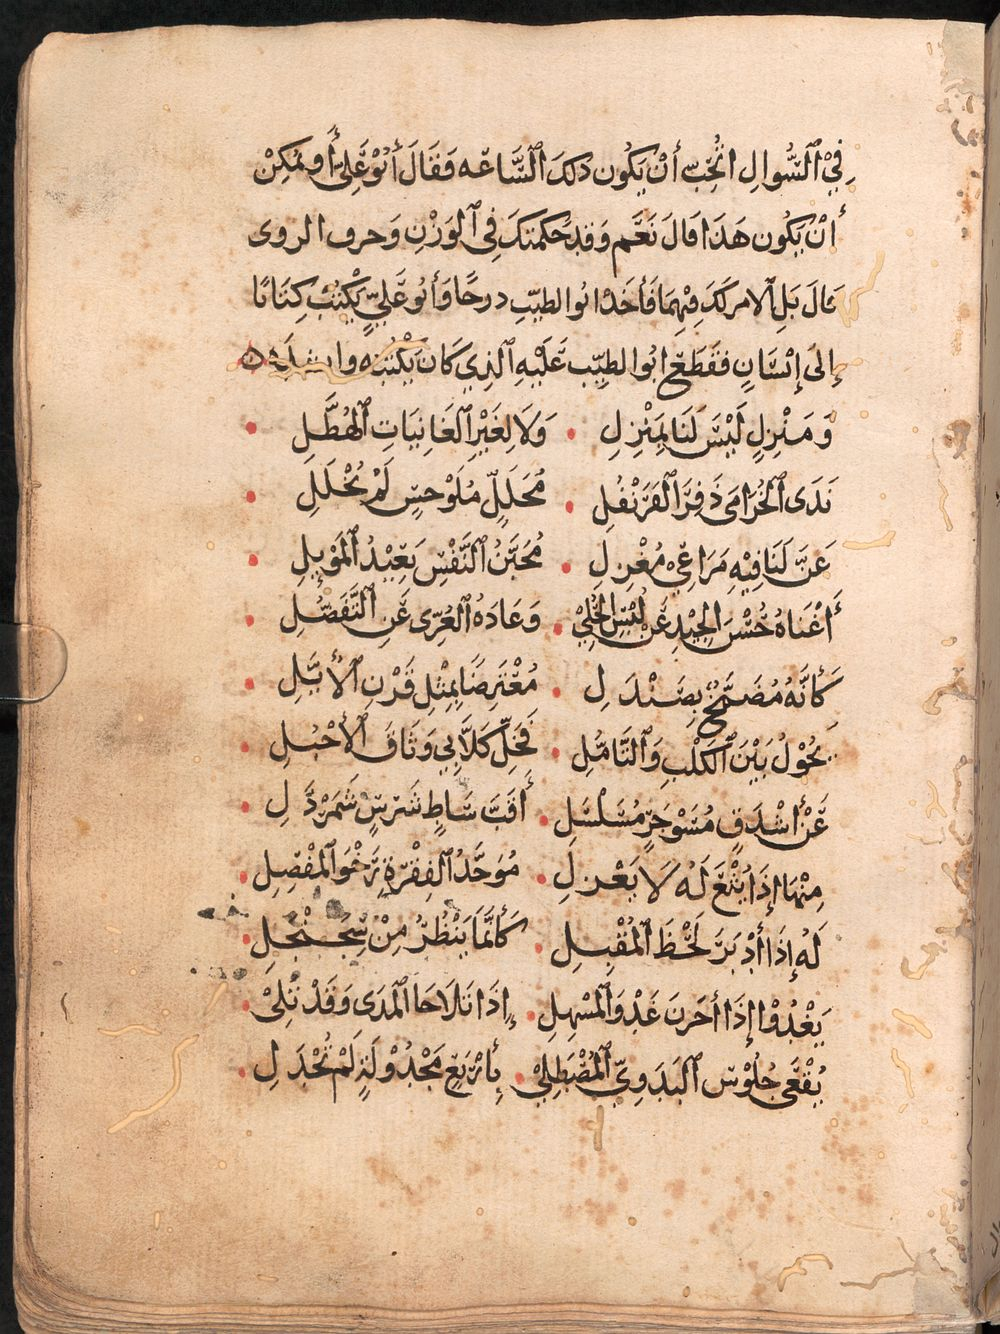 فِيْ ٱلسُّوالِ اتُحِبّ أنْ يَكُون ذلكَ ٱلسَّاعَه فَقَالَ أبُوْ عَلِيٍّ أَو يُمكِنُ
أنْ يَكُون هَذَا قالَ نَعَم وَقد حَكمتكَ فِي ٱلوَزْنِ وَحرف الروى
قالَ بَلِ ٱلامر لَكَ فِيْهِمَا فَأخَذَ ابُو الطيّبِ درجًا وَأبُو عَليٍّ يَكْتُبُ كِتَابًا
إلىَ إنْسَانٍ فقَطَعَ ابُو الطيّب عَلَيْهِ ٱلذِي كَانَ يَكْتُبُه وانشدَه
وَمَنْزِلٍ لَيْسَ لَنَا بِمَنْزِلِ • وَلَا لِغَيْرِ ٱلغَانِيَاتِ ٱلهُطَّلِ •
نَدَى ٱلخُزَامَى ذَفِرَ ٱلقَرَنْفُلِ • مُحَلَلٍ مِلوَحشِ لَمْ يُحْلَلِ •
عَنَّ لَنَا فِيْهِ مَرَاعِيْ مُغْزِلِ • مُحَيَّنُ ٱلنَّفْسِ بَعِيْدُ ٱلمَوْئِلِ •
أَغْنَاهُ حُسْنُ ٱلجِيْدِ عَنْ لُبْسِ ٱلحُلِيْ • وَعَادَهُ ٱلعُرْى عَنِ ٱلتَّفَضُّلِ •
كَأنَّهُ مُضَمَّخٌ بِصَنْدَلِ • مُعْتَرِضًا بِمِثْلِ قَرْنِ ٱلأُيَّلِ •
يَحُوْلُ بَيْنَ ٱلكَلْبِ وَٱلتَّأمُّلِ • فَحَلَّ كَلَّابِي وَثَاقَ ٱلأحْبُلِ •
عَنْ أشْدَقٍ مُسَوْجَرٍ مُسَلْسَلِ • أَقَبَّ سَاطٍ شَرِسٍ شَمَرْدَلِ •
مِنْهَا إذَا يُثْغَ لَهُ لَا يَغْزلِ • مُوَجَّدُ ٱلفِقْرَةِ رِخْوَ ٱلمَفْصِلِ •
لَهُ إذَا أَدْبَرَ لَحْظَ ٱلمُقْبِلِ • كَأنَّمَا يَنْظُرُ مِنْ سَجَنْجَلِ •
يَعْدُوْا إذَا أحْزَنَ عَدْوَ ٱلمُسْهِلِ • إذَا تَلَا جَا ٱلمَدَى وَقَدْ تُلِيْ •
يُقْعَى جُلُوْسَ ٱلبَدَوِيِّ ٱلمُصْطَلِيْ • بِأرْبَعٍ مَجْدُوْلَةٍ لَمْ تُجْدَلِ •